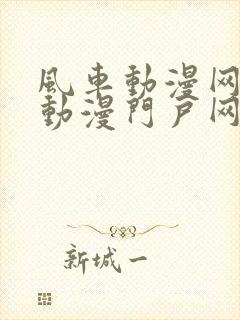 風車動漫网
動漫門户网
新城一